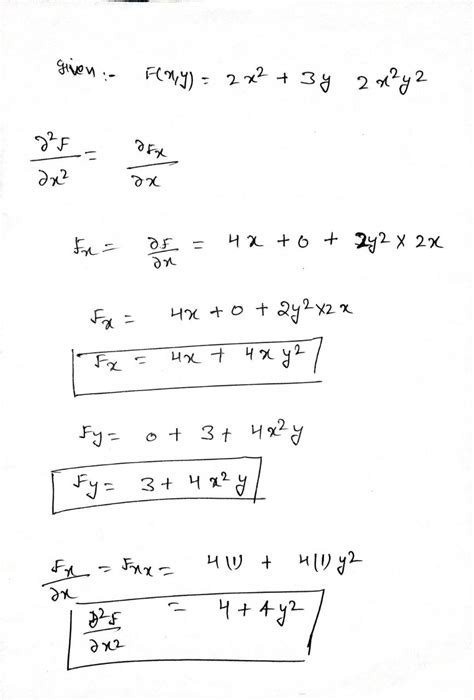 Given :- F(x,y) = 2x² + 3y 2x²y²
∂²F/∂x² = ∂Fx/∂x
Fx = ∂F/∂x = 4x + 0 + 2y² × 2x
Fx = 4x + 0 + 2y² × 2x
Fx = 4x + 4xy²
Fy = 0 + 3 + 4x²y
Fy = 3 + 4x²y
Fx/∂x = Fxx = 4(1) + 4(1)y²
∂²F/∂x² = 4 + 4y²